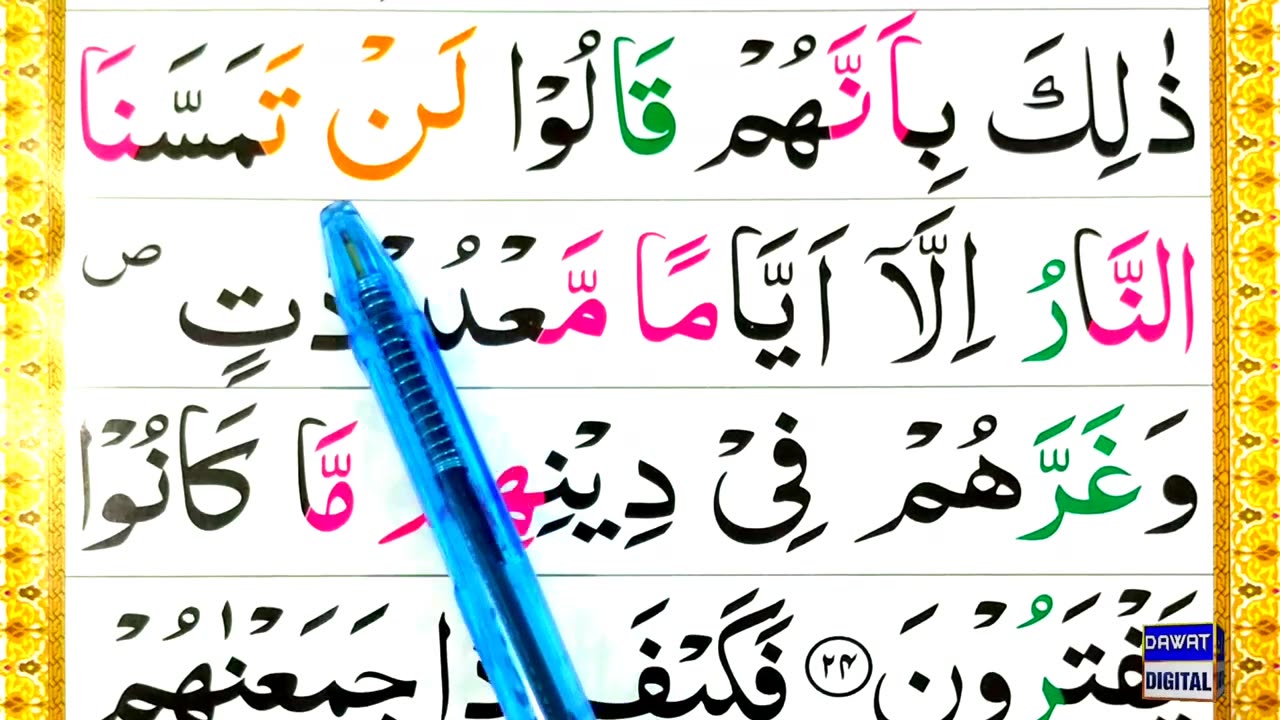 ذٰلِكَ بِاَنَّهُمْ قَالُوْا لَنْ تَمَسَّنَا
النَّارُ اِلَّآ اَيَّامًا مَّعْدُوْدٰتٍ ۖ
وَغَرَّهُمْ فِیْ دِيْنِهِمْ مَّا كَانُوْا
يَفْتَرُوْنَ ﴿۲۴﴾ فَكَيْفَ اِذَا جَمَعْنٰهُمْ
DAWAT
DIGITAL